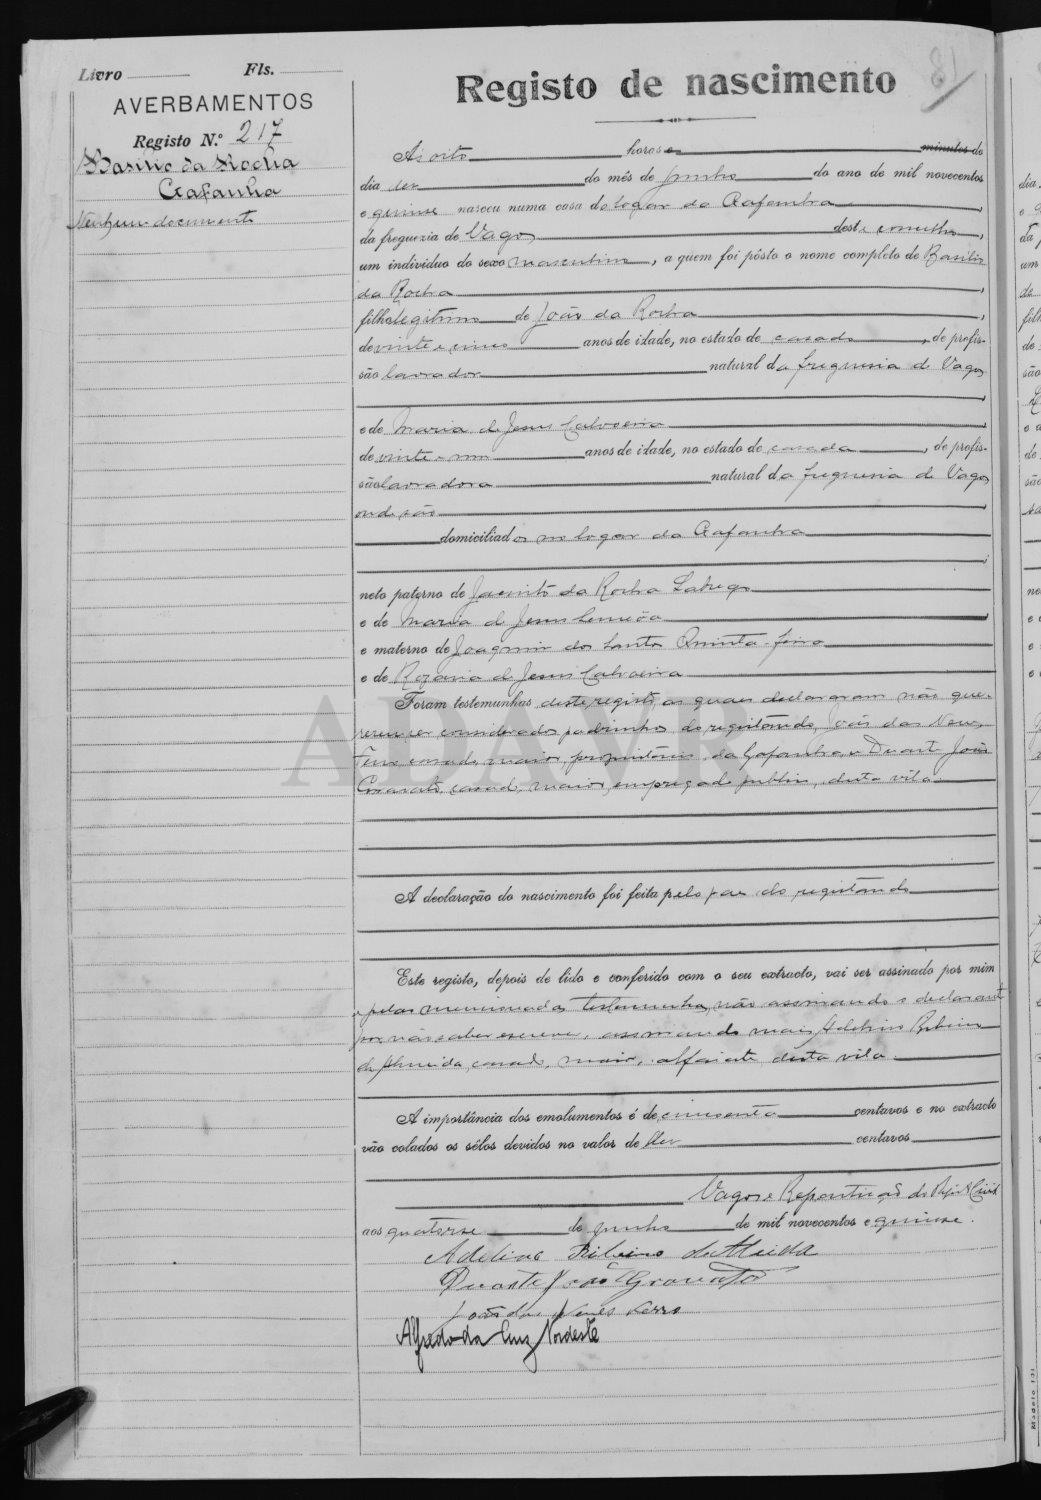 Livro
Fls.
81
AVERBAMENTOS
Registo N.º 217
Basilio da Rocha
Gafanha
Nenhum documento
Registo de nascimento
Ás oito horas e minutos do
dia dez do mês de junho do ano de mil novecentos
e quinze nasceu numa casa do logar da Gafanha,
da freguezia de Vagos deste concelho,
um individuo do sexo masculino, a quem foi pôsto o nome completo de Basilio
da Rocha,
filho legitimo de João da Rocha,
de vinte e cinco anos de idade, no estado de casado, de profis-
são lavrador natural da freguesia de Vagos
,
e de Maria de Jesus Calvoeira,
de vinte e um anos de idade, no estado de casada, de profis-
são lavradora natural da freguesia de Vagos
onde são,
domiciliados no logar da Gafanha
;
neto paterno de Jacinto da Rocha Labrego
e de Maria de Jesus,
e materno de Joaquim dos Santos Quinta-feira
e de Rozaria de Jesus Calvoeira
Foram testemunhas deste registo, as quais declararam não que-
rerem ser considerados padrinhos do registando, João das Neves
Ferro, casado, maior, proprietario, da Gafanha, e Duarte João
Granato, casado, maior, empregado publico, desta vila
ADAVR
A declaração do nascimento foi feita pelo pae do registando
Este registo, depois de lido e conferido com o seu extracto, vai ser assinado por mim
e pelas mencionadas testemunhas, não assinando o declarante
por não saber escrever, assinando mais Adelino Ribeiro
de Almeida, casado, maior, alfaiate, desta vila
A importância dos emolumentos é de cincoenta centavos e no extracto
vão colados os sêlos devidos no valor de dez centavos
Vagos e Repartição do Registo Civil
aos quatorze de junho de mil novecentos e quinze.
Adelino Ribeiro de Almeida
Duarte João Granato
João das Neves Ferro
Alfredo da Cruz Nordeste